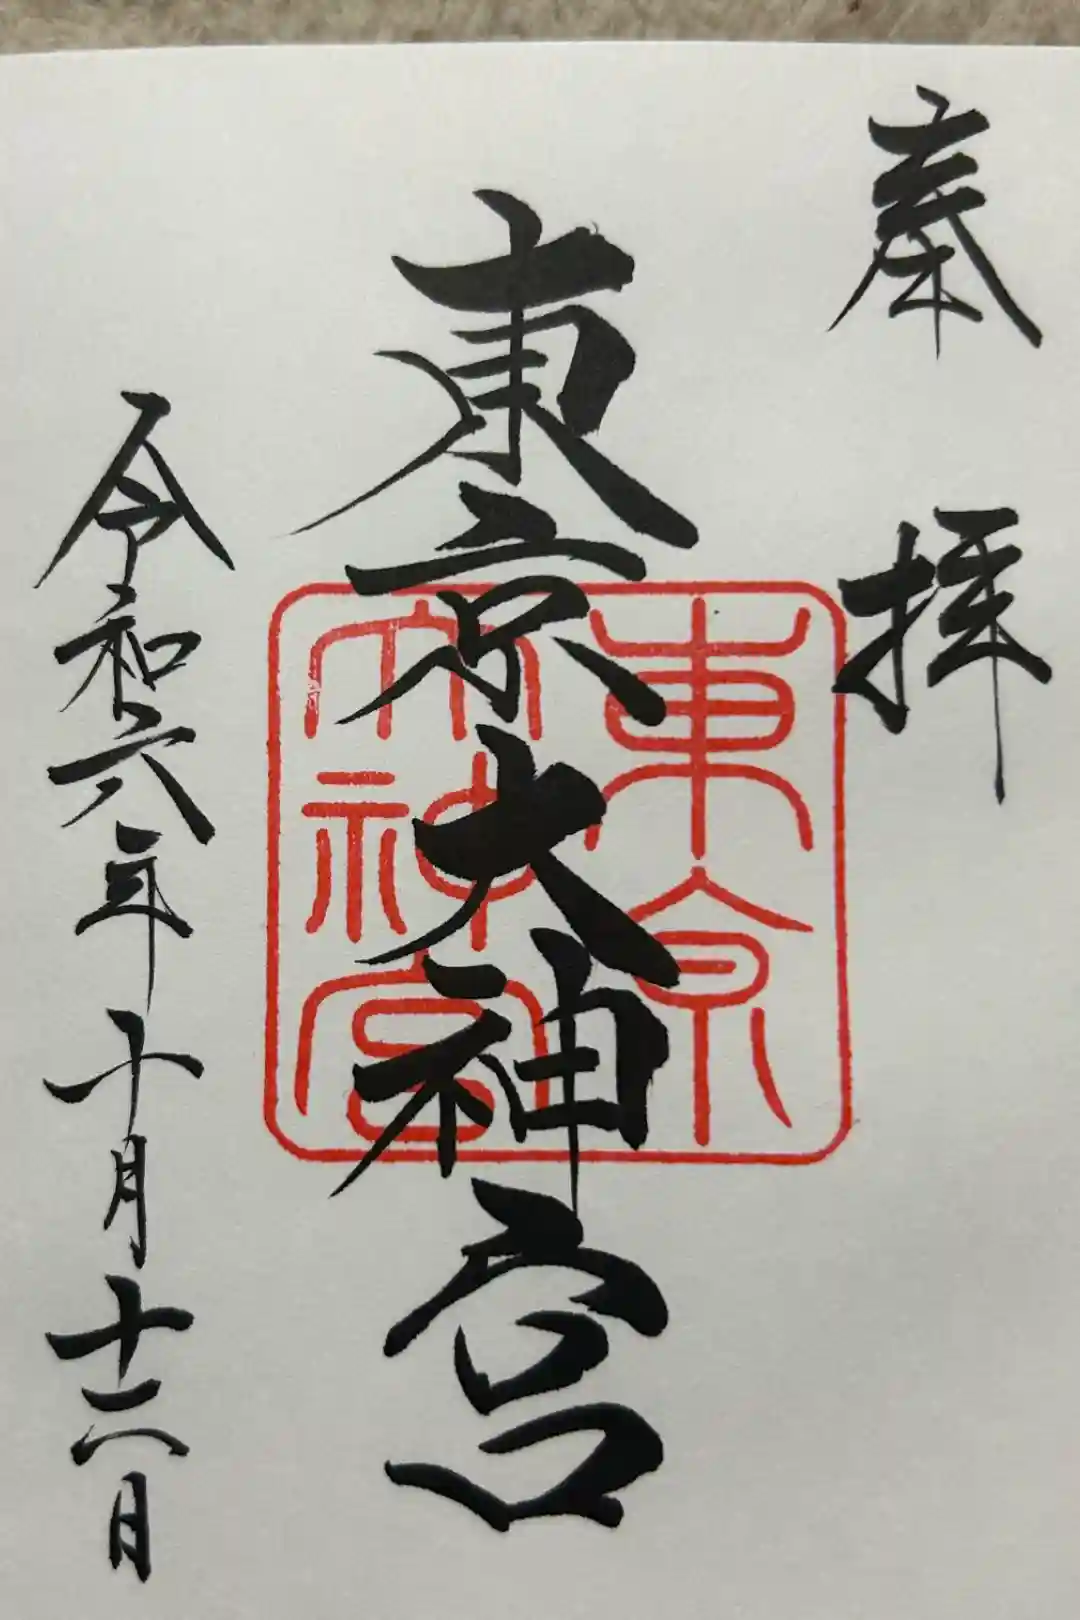 奉拝
東京大神宮
東京
大神宮
令和六年十月十六日